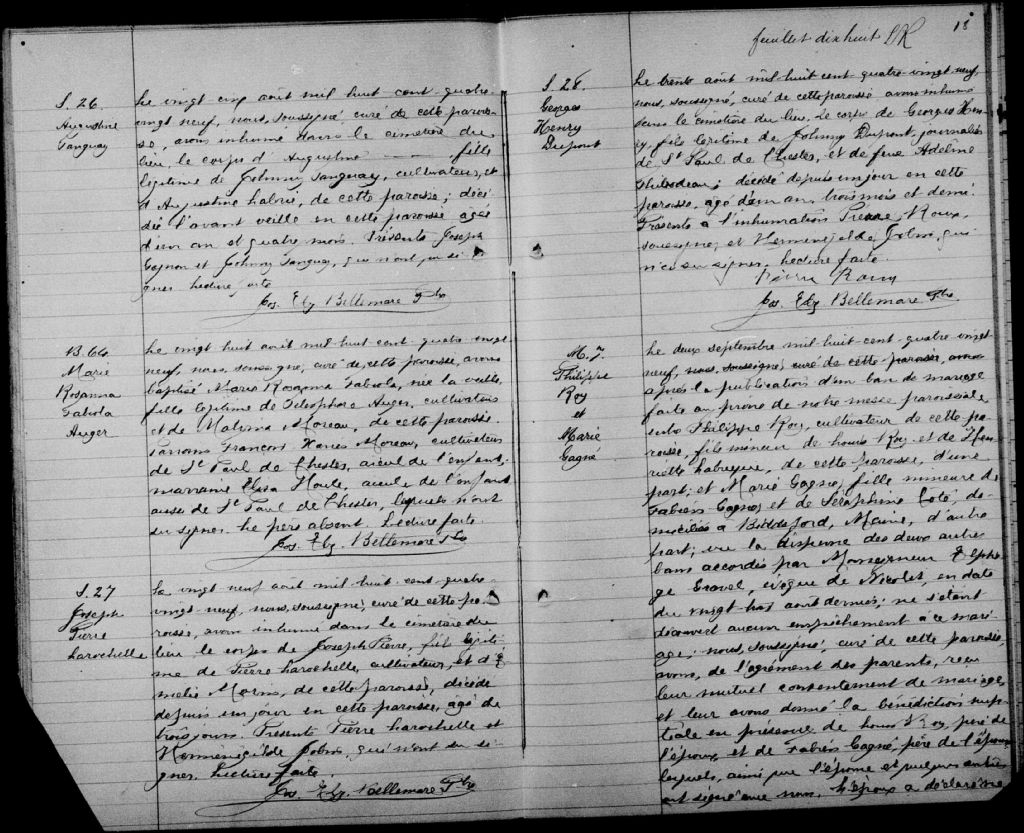 S. 26
Augustine
Tanguay
Le vingt cinq août mil huit cent quatre-
vingt neuf, nous, soussigné curé de cette parois-
se, avons inhumé dans le cimetière du
lieu le corps d'Augustine fille
légitime de Johnny Tanguay, cultivateur, et
d'Augustine de cette paroisse; décé-
dée l'avant veille en cette paroisse agée
d'un an et quatre mois. Présents Joseph
Gagnon et Johnny Tanguay, qui n'ont pu si-
gner lecture faite
Jos. Elz. Bellemare Ptre
B. 64
Marie
Rosanna
Fabiola
Auger
Le vingt huit août mil huit cent quatre vingt
neuf, nous, soussigné, curé de cette paroisse, avons
baptisé Marie Rosanna Fabiola, née la veille,
fille légitime de Télesphore Auger, cultivateur
et de Malvina Moreau, de cette paroisse.
Parrain François Xavier Moreau, cultivateur
de St Paul de Chester, aïeul de l'enfant,
marraine Elisa Houle, aieule de l'enfant
aussi de St Paul de Chester, lesquels n'ont
su signer. Le père absent. Lecture faite.
Jos. Elz. Bellemare Ptre
S. 27
Joseph
Pierre
Larochelle
Le vingt neuf août mil huit cent quatre-
vingt neuf, nous, soussigné, curé de cette pa-
roisse, avons inhumé dans le cimetière du
lieu le corps de Joseph Pierre, fils légiti-
me de Pierre Larochelle, cultivateur, et d'E
melie de cette paroisse, décédé
depuis un jour en cette paroisse, agé de
trois jours. Présents Pierre Larochelle et
Herménégilde qui n'ont su si-
gner. Lecture faite
Jos. Elz. Bellemare Ptre
feuillet dix huit 18
S. 28
Georges
Henry
Dupont
Le trente août mil huit cent quatre vingt neuf,
nous, soussigné, curé de cette paroisse avons inhumé
dans le cimetière du lieu, le corps de Georges Hen-
ry, fils légitime de Johnny Dupont, journalier
de St Paul de Chester, et de feue Adeline
Thibodeau; décédé depuis un jour en cette
paroisse, agé d'un an, trois mois et demi.
Présents à l'inhumation Pierre Roux,
soussigné, et Herménégilde qui
n'a su signer. Lecture faite.
Pierre Roux
Jos. Elz. Bellemare Ptre
M. 7.
Philippe
Roy
et
Marie
Gagné
Le deux septembre mil huit cent quatre vingt
neuf, nous, soussigné, curé de cette paroisse, avons
après la publication d'un ban de mariage
faite au prône de notre messe paroissiale,
entre Philippe Roy, cultivateur de cette pa-
roisse, fils mineur de Louis Roy et de Hen-
riette Labrecque, de cette paroisse, d'une
part; et Marie Gagné, fille mineure de
Fabien Gagné et de Séraphine Coté do-
miciliés à Biddeford, Maine, d'autre
part; vu la dispense des deux autres
bans accordés par Monseigneur Elphè-
ge Gravel, évêque de Nicolet, en date
du vingt août dernier; ne s'étant
découvert aucun empêchement à ce mari-
age; nous, soussigné, curé de cette paroisse,
avons, de l'agrément des parents, reçu
leur mutuel consentement de mariage
et leur avons donné la bénédiction nup-
tiale en présence de Louis Roy, père de
l'époux, et de Fabien Gagné, père de l'épouse,
lesquels, ainsi que l'épouse et quelques autres
ont signé avec nous. L'époux a déclaré ne